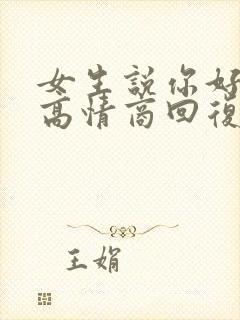 女生説你好
高情商回復
王娟